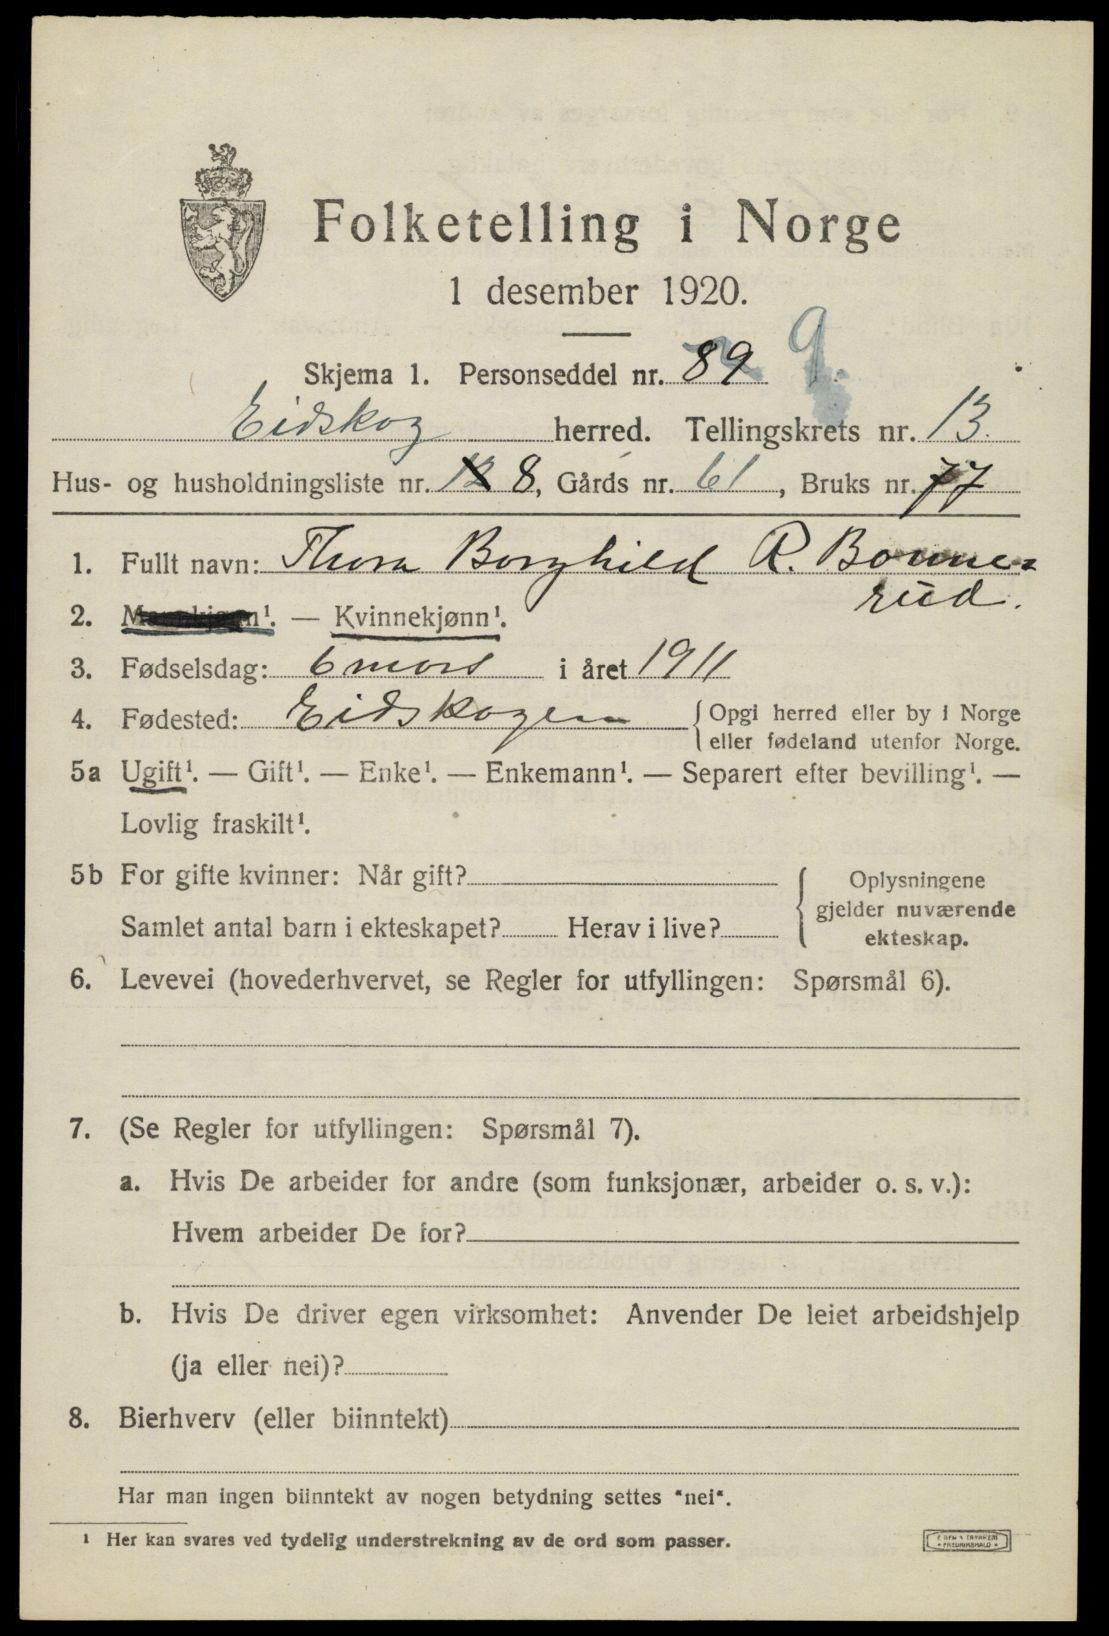 Folketelling i Norge
1 desember 1920.
Skjema 1. Personseddel nr. 89 9.
Eidskog herred. Tellingskrets nr. 13.
Hus- og husholdningsliste nr. 12 8, Gårds nr. 61, Bruks nr. 77
1. Fullt navn: Thora Borghild R. Bonne=
rud.
2. Mannkjønn¹. — Kvinnekjønn¹.
3. Fødselsdag: 6 mars i året 1911
4. Fødested: Eidskogen {Opgi herred eller by i Norge
eller fødeland utenfor Norge.
5a Ugift¹. — Gift¹. — Enke¹. — Enkemann¹. — Separert efter bevilling¹. —
Lovlig fraskilt¹.
5b For gifte kvinner: Når gift? { Oplysningene
gjelder nuværende
Samlet antal barn i ekteskapet? Herav i live? ekteskap.
6. Levevei (hovederhvervet, se Regler for utfyllingen: Spørsmål 6).
7. (Se Regler for utfyllingen: Spørsmål 7).
a. Hvis De arbeider for andre (som funksjonær, arbeider o. s. v.):
Hvem arbeider De for?
b. Hvis De driver egen virksomhet: Anvender De leiet arbeidshjelp
(ja eller nei)?
8. Bierhverv (eller biinntekt)
Har man ingen biinntekt av nogen betydning settes "nei".
¹ Her kan svares ved tydelig understrekning av de ord som passer.